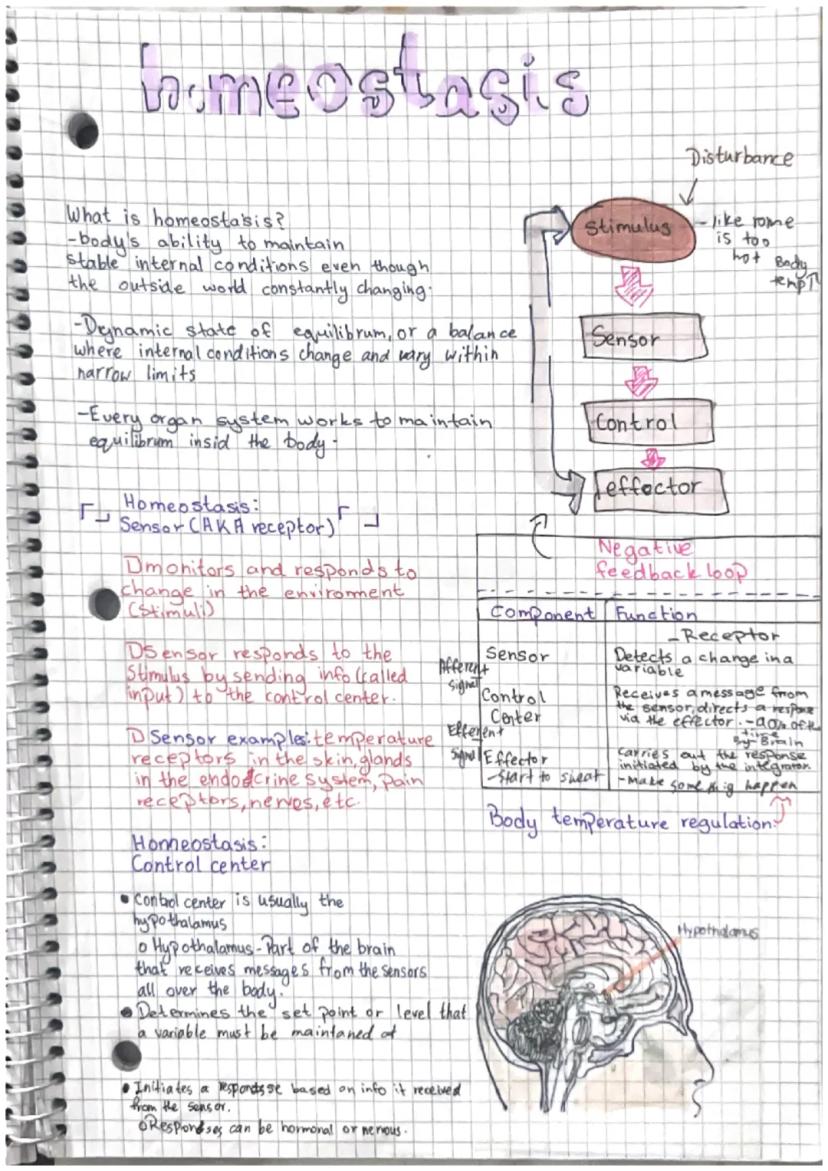 homeostasis
Disturbance
What is homeostasis?
-body's ability to maintain
stable internal conditions even though
the outside world constantly changing.
-Dynamic state of equilibrum, or a balance
where internal conditions change and vary within
narrow limits
-Every organ system works to maintain
equilibrum insid the body-
Stimulus
-like rome
is too
hot
Body
temp↑
Sensor
Control
effector
Homeostasis:
Sensor (AKA receptor)
monitors and responds to
change in the enviroment
(Stimuli)
Sensor responds to the
Stimulus by sending info (called
input) to the control center.
Sensor examples: temperature
receptors in the skin, glands
in the endocrine system, pain
receptors, nerves, etc.
Negative
feedback loop
Component Function
-Receptor
Sensor Detects a change in a
variable
Afferent
signal
Control Receives a message from
Center the sensor, directs a respose
via the effector. -90% of the
time
By Brain
Efferent
signal
Effector carries out the response
initiated by the integrator
-start to sweat -Make some thig happen
Body temperature regulation:
Homeostasis:
Control center
• Control center is usually the
hypothalamus
o Hypothalamus-Part of the brain
that receives messages from the sensors
all over the body.
• Determines the set point or level that
a variable must be maintaned at
• Initiates a respondsse based on info it received
from the sensor.
o Respondses can be hormonal or nervous.
Hypothalamus